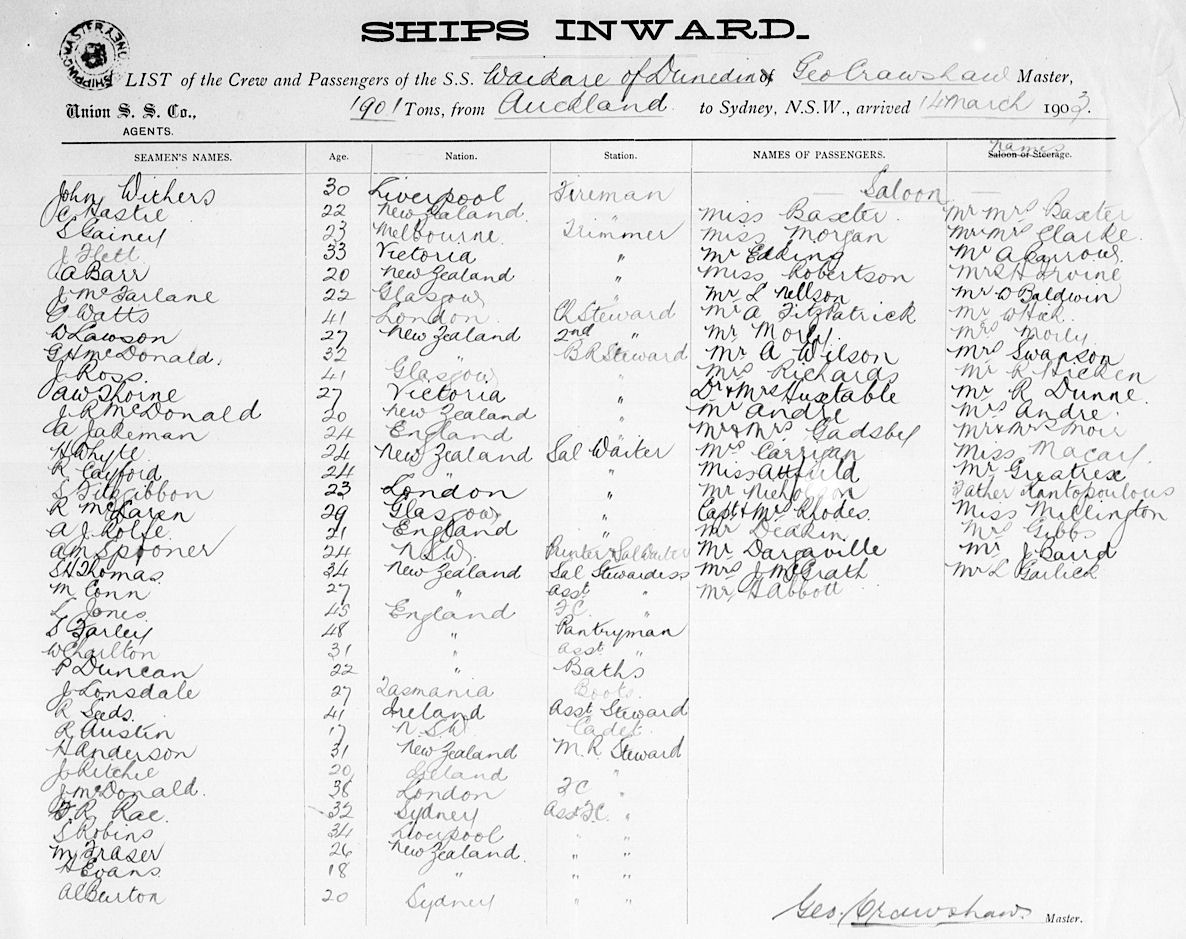 SHIPS INWARD.
SHIPPING MASTER
LIST of the Crew and Passengers of the S.S. Waikare of Dunedin of Geo Crawshaw Master,
Union S. S. Co., AGENTS. 1901 Tons, from Auckland to Sydney, N.S.W., arrived 14 March 1903.
SEAMEN'S NAMES. Age. Nation. Station. NAMES OF PASSENGERS. Names Saloon or Steerage.
John Withers 30 Liverpool Fireman — Saloon —
C Hastie 22 New Zealand " Miss Baxter Mr Mrs Baxter
S Gainey 23 Melbourne Trimmer Miss Morgan Mr Mrs Clarke
J Flett 33 Victoria " Mr Edding Mr A Carrow
A A Barr 20 New Zealand " Miss Robertson Mrs H Irvine
J McFarlane 22 Glasgow " Mr L Nellson Mr D Baldwin
G Watts 41 London Ch Steward Mr A Fitzpatrick Mr W Hok
W Lawson 27 New Zealand 2nd " Mr Morly Mrs Morly
G H McDonald. 32 " B R Steward Mr A Wilson Mrs Swanson
J Ross 41 Glasgow " Mrs Richards Mr R Hicken
A W Thoine 27 Victoria " Dr & Mrs Huxtable Mr R Dunne
J R McDonald 20 New Zealand " Mr Andre Mrs Andre
A Jakeman 24 England " Mr & Mrs Gadsby Mr & Mrs Moir
H Whyte 24 New Zealand Sal Waiter Mrs Carrigan Miss Macay
R Cayford 24 " " " Miss Attfield Mr Greatrex
S Fitzgibbon 23 London " Mr Nichol on Father Kantopoulous
R McLaren 29 Glasgow " Capt & Mrs Rhodes Miss Millington
A J Rolfe 21 England " Mr Deakin Mrs Gibbs
A M Spooner 24 N.S.W. Printer & Sal Waiter Mr Dargaville Mr J Baird
S H Thomas 34 New Zealand Sal Stewardess Mrs J McGrath Mr L Garlick
M Conn 27 " Asst " Mr H Abbott
L Jones 45 England F.C. "
S Farley 48 " Pantryman
W Charlton 31 " Asst "
P Duncan 22 " Baths
J Lonsdale 27 Tasmania Boots
R Seeds 41 Ireland Asst Steward
R Austin 17 N.S.W. Cadet
H Anderson 31 New Zealand M. R. Steward
J Ritchie 20 "
J McDonald. 38 London F C "
F R Rae. 32 Sydney Asst F.C. "
S Robins 34 Liverpool " "
M Fraser 26 New Zealand " "
H Evans 18 " " "
A C Burton 20 Sydney " "
Geo. Crawshaw Master.